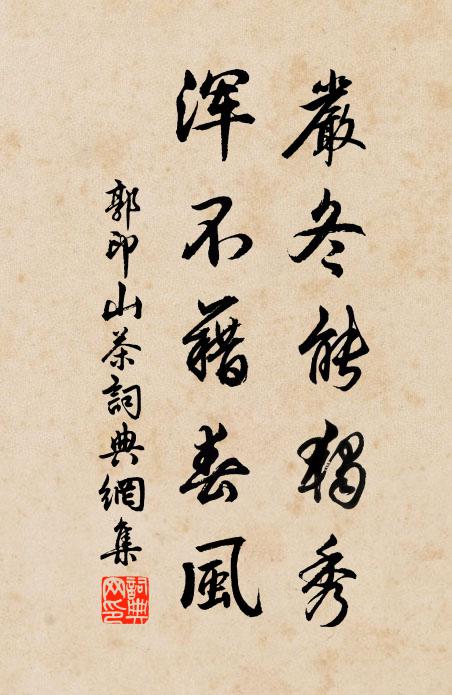 嚴冬能獨秀
渾不藉春風
郭印山茶詞典網集
詞典网印